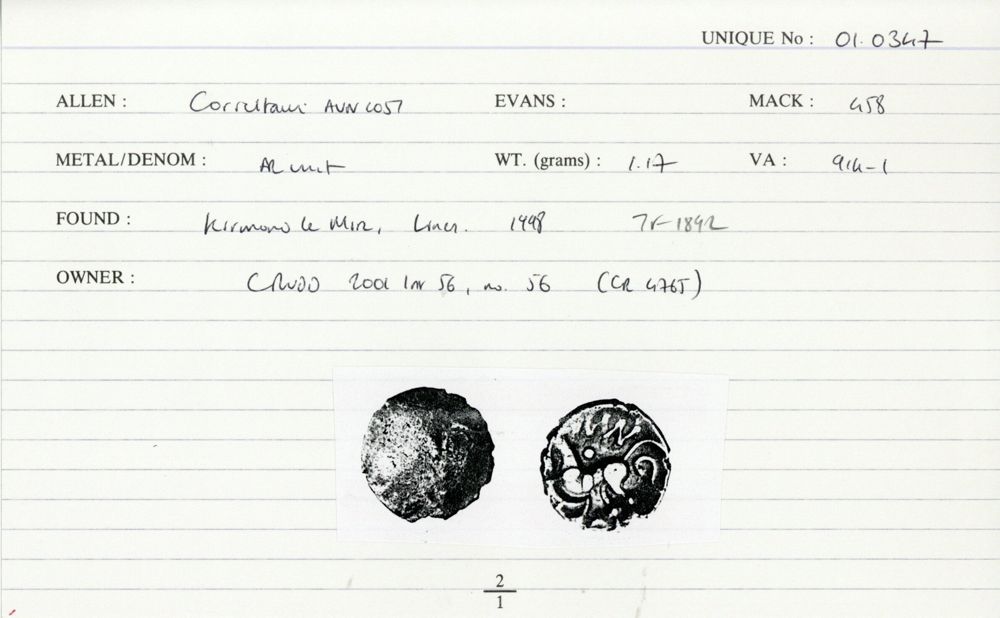 UNIQUE No : 01.0347
ALLEN : Corieltauvi AVN COST EVANS : MACK : 458
METAL/DENOM : AR unit WT. (grams) : 1.17 VA : 914-1
FOUND : Kirmond le Mire, Lincs. 1998
OWNER : CRUDD 2001 Inv 56, no. 56 (CR 4765)
2
1